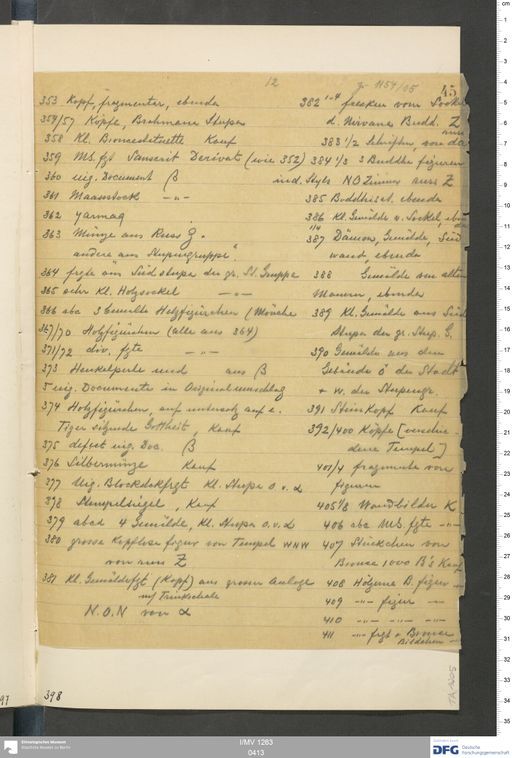 12
gr. 1154/05
45
353 Kopf, fragmentar, ebenda
354/57 Köpfe, Brahmann Stupen
358 Kl. Bronzestatuette Kauf
359 MS. fgt Sanscrit Derivat (wie 352)
360 uig. Document β
361 Maasstock -"-
362 Yarmaq
363 Münze aus Russ
andere aus "Stupengruppe"
364 frgte am Süd stupa der gr. St. Gruppe
365 sehr kl. Holzsockel -"-
366 abc 3 bemalte Holzfigürchen (Mönche
367/70 Holzfigürchen (alle aus 364)
371/72 div. fgte -"-
373 Henkelperle und aus β
5 uig. Documente in Originalumschlag
374 Holzfigürchen, auf untersatz auf e.
Tiger sitzende Gottheit, Kauf
375 defect uig. Doc. β
376 Silbermünze Kauf
377 Uig. Blockdrkfrgt kl. Stupa o. v. α
378 Stempelsiegel, Kauf
379 abcd 4 Gemälde, Kl. Stupa o. v. α
380 grosse Kopflose figur von Tempel WNW
von Z
381 Kl. Gemäldefgt (Kopf) aus grosser Anlage
m/ Trinkschale
N.O.N von α
382 1-4 fresken vom Sockel
d. Nirvana Buddh. Z
383 1/2 Schriften, von da
384 1/3 3 Buddha figuren
ind. Styls N.O Zimmer aus Z
385 Buddhist. ebenda
386 Kl. Gemälde v. Sockel,
387 1/4 Dämon, Gemälde, Süd
wand, ebenda
388 Gemälde von alten
Mauern, ebenda
389 Kl. Gemälde aus Süd
Stupa der gr. Stup. G.
390 Gemälde aus dem
Gebäude ö der Stadt
+ w. der Stupengr.
391 Steinkopf Kauf
392/400 Köpfe [verschie-
dene Tempel]
401/4 fragmente von
figuren
405/8 Wandbilder K
406 abc MS. fgte -"-
407 Stückchen von
Bronze 1000 B's Kauf
408 Hölzerne B. figur
409 -"- figur -"-
410 -"- -"- -"-
411 -"- frgt v. Bronze
Bildchen
TA 1205
97
398
I/MV 1283
0413
Ethnologisches Museum
Staatliche Museen zu Berlin
DFG
Deutsche
Forschungsgemeinschaft